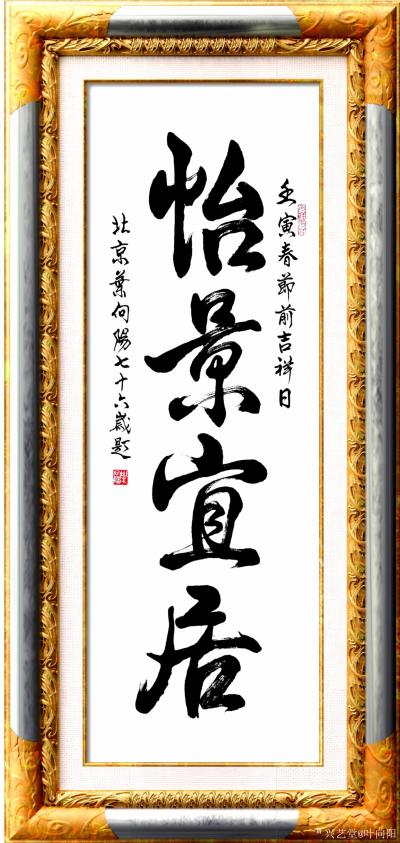 壬寅春節前吉祥日
怡景宜居
北京葉向陽七十六歲題
兴艺堂@叶向阳